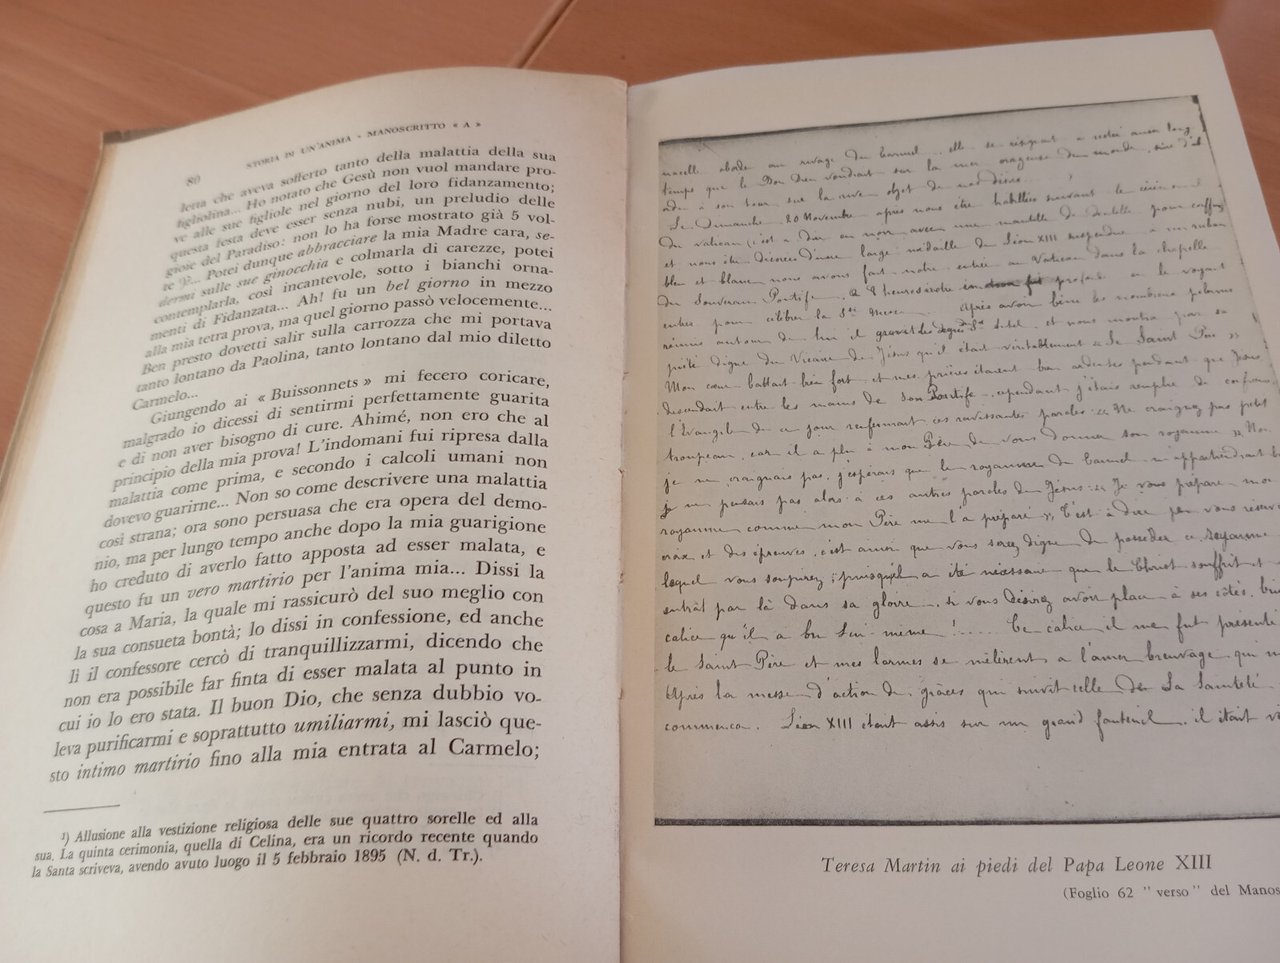 80
STORIA DI UN'ANIMA - MANOSCRITTO « A »
letta che aveva sofferto tanto della malattia della sua
figliolina... Ho notato che Gesù non vuol mandare pro-
ve alle sue figliole nel giorno del loro fidanzamento;
questa festa deve esser senza nubi, un preludio delle
gioie del Paradiso: non lo ha forse mostrato già 5 vol-
te ¹)?... Potei dunque abbracciare la mia Madre cara, se-
dermi sulle sue ginocchia e colmarla di carezze, potei
contemplarla, così incantevole, sotto i bianchi orna-
menti di Fidanzata... Ah! fu un bel giorno in mezzo
alla mia tetra prova, ma quel giorno passò velocemente...
Ben presto dovetti salir sulla carrozza che mi portava
tanto lontano da Paolina, tanto lontano dal mio diletto
Carmelo...
Giungendo ai « Buissonnets » mi fecero coricare,
malgrado io dicessi di sentirmi perfettamente guarita
e di non aver bisogno di cure. Ahimé, non ero che al
principio della mia prova! L'indomani fui ripresa dalla
malattia come prima, e secondo i calcoli umani non
dovevo guarirne... Non so come descrivere una malattia
così strana; ora sono persuasa che era opera del demo-
nio, ma per lungo tempo anche dopo la mia guarigione
ho creduto di averlo fatto apposta ad esser malata, e
questo fu un vero martirio per l'anima mia... Dissi la
cosa a Maria, la quale mi rassicurò del suo meglio con
la sua consueta bontà; lo dissi in confessione, ed anche
lì il confessore cercò di tranquillizzarmi, dicendo che
non era possibile far finta di esser malata al punto in
cui io lo ero stata. Il buon Dio, che senza dubbio vo-
leva purificarmi e soprattutto umiliarmi, mi lasciò que-
sto intimo martirio fino alla mia entrata al Carmelo;
¹) Allusione alla vestizione religiosa delle sue quattro sorelle ed alla
sua. La quinta cerimonia, quella di Celina, era un ricordo recente quando
la Santa scriveva, avendo avuto luogo il 5 febbraio 1895 (N. d. Tr.).
nacelle aborde au rivage du Carmel, elle se résignait à rester aussi long
temps que le Bon Dieu voudrait sur la mer orageuse du monde, sûre d'ab
order à son tour sur la rive objet de nos désirs
Le Dimanche 20 Novembre après nous être habillées suivant le cérémonial
du vatican (c'est à dire en noir avec une mantille de dentelle pour coiffure)
et nous être décorées d'une large médaille de Léon XIII suspendue à un ruban
bleu et blanc nous avons fait notre entrée au Vatican dans la chapelle
du Souverain Pontife. A 8 heures
entrer pour célébrer la Ste Messe Après avoir béni les nombreux pèlerins
réunis autour de lui il gravit les degrés du St Autel, et nous montra par sa
piété digne du Vicaire de Jésus qu'il était véritablement « le Saint Père »
Mon cœur battait bien fort et mes prières étaient bien ardentes pendant que Jésus
descendait entre les mains de son Pontife cependant j'étais remplie de confiance
l'Evangile de ce jour renfermait ces ravissantes paroles: « Ne craignez pas petit
troupeau, car il a plu à mon Père de vous donner son royaume » Non
je ne craignais pas, j'espérais que le royaume du Carmel m'appartiendrait
je ne pensais pas alors à ces autres paroles de Jésus: « Je vous prépare mon
royaume comme mon Père me l'a préparé » C'est à dire je vous réserve
croix et des épreuves, c'est ainsi que vous serez digne de posséder ce royaume
lequel vous soupirez; puisqu'il a été nécessaire que le Christ souffrît et
entrât par là dans sa gloire, si vous désirez avoir place à ses côtés,
calice qu'il a bu Lui-même!..... Ce calice, il me fut présenté
le Saint Père et mes larmes se mêlèrent à l'amer breuvage qui
Après la messe d'action de grâces qui suivit celle de Sa Sainteté
commença. Léon XIII était assis sur un grand fauteuil, il était
Teresa Martin ai piedi del Papa Leone XIII
(Foglio 62 "verso" del Manos